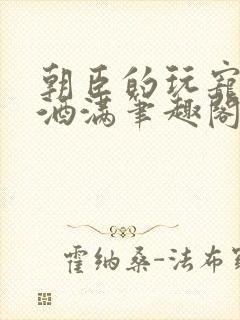 朝臣的玩宠
酒满笔趣阁
霍纳桑-法布